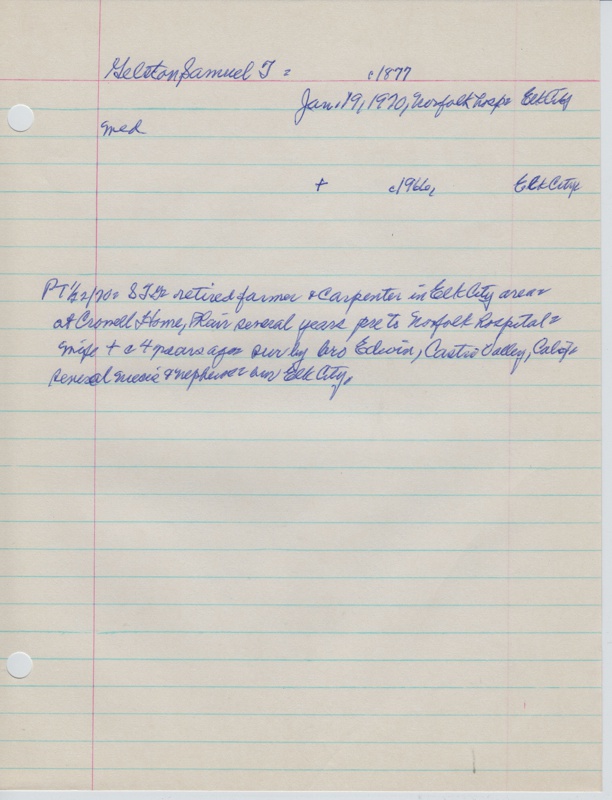 Gelston Samuel T = c1877
Jan. 19, 1970, Norfolk hosp= Elk City
med
+ c1966, Elk City
PT 1/22/70= STG= retired farmer & carpenter in Elk City area=
at Crowell Home, Blair several years pre to Norfolk hospital=
wife + c 4 years ago= sur by bro Edwin, Castro Valley, Calif=
several niece & nephews= bur Elk City.